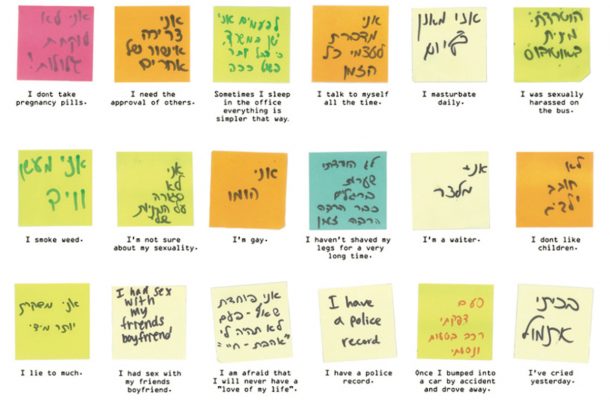 אני לא
לוקחת
גלולות!
I dont take
pregnancy pills.
אני
צריכה
אישור של
אחרים
I need the
approval of others.
לפעמים אני
ישן במשרד,
כי
ככה
Sometimes I sleep
in the office
everything is
simpler that way.
אני
מדברת
לעצמי כל
הזמן
I talk to myself
all the time.
אני מאונן
כל יום
I masturbate
daily.
הוטרדתי
מינית
באוטובוס
I was sexually
harassed on
the bus.
אני מעשן
וויד
I smoke weed.
אני
לא
סגורה
על הנטיות
שלי
I'm not sure
about my sexuality.
אני
הומו
I'm gay.
לא הורדתי
שערות
ברגליים
כבר הרבה
הרבה זמן
I haven't shaved my
legs for a very
long time.
אני
מלצר
I'm a waiter.
לא
חובב
ילדים
I dont like
children.
אני משקרת
יותר מידי
I lie to much.
I had sex
with
my
friends
boyfriend
I had sex with
my friends
boyfriend.
אני פוחדת
שאף-פעם
לא תהיה לי
"אהבת-חיי"
I am afraid that
I will never have a
"love of my life".
I have
a police
record
I have a police
record.
פעם
דפקתי
רכב בטעות
ונסעתי
Once I bumped into
a car by accident
and drove away.
בכיתי
אתמול
I've cried
yesterday.